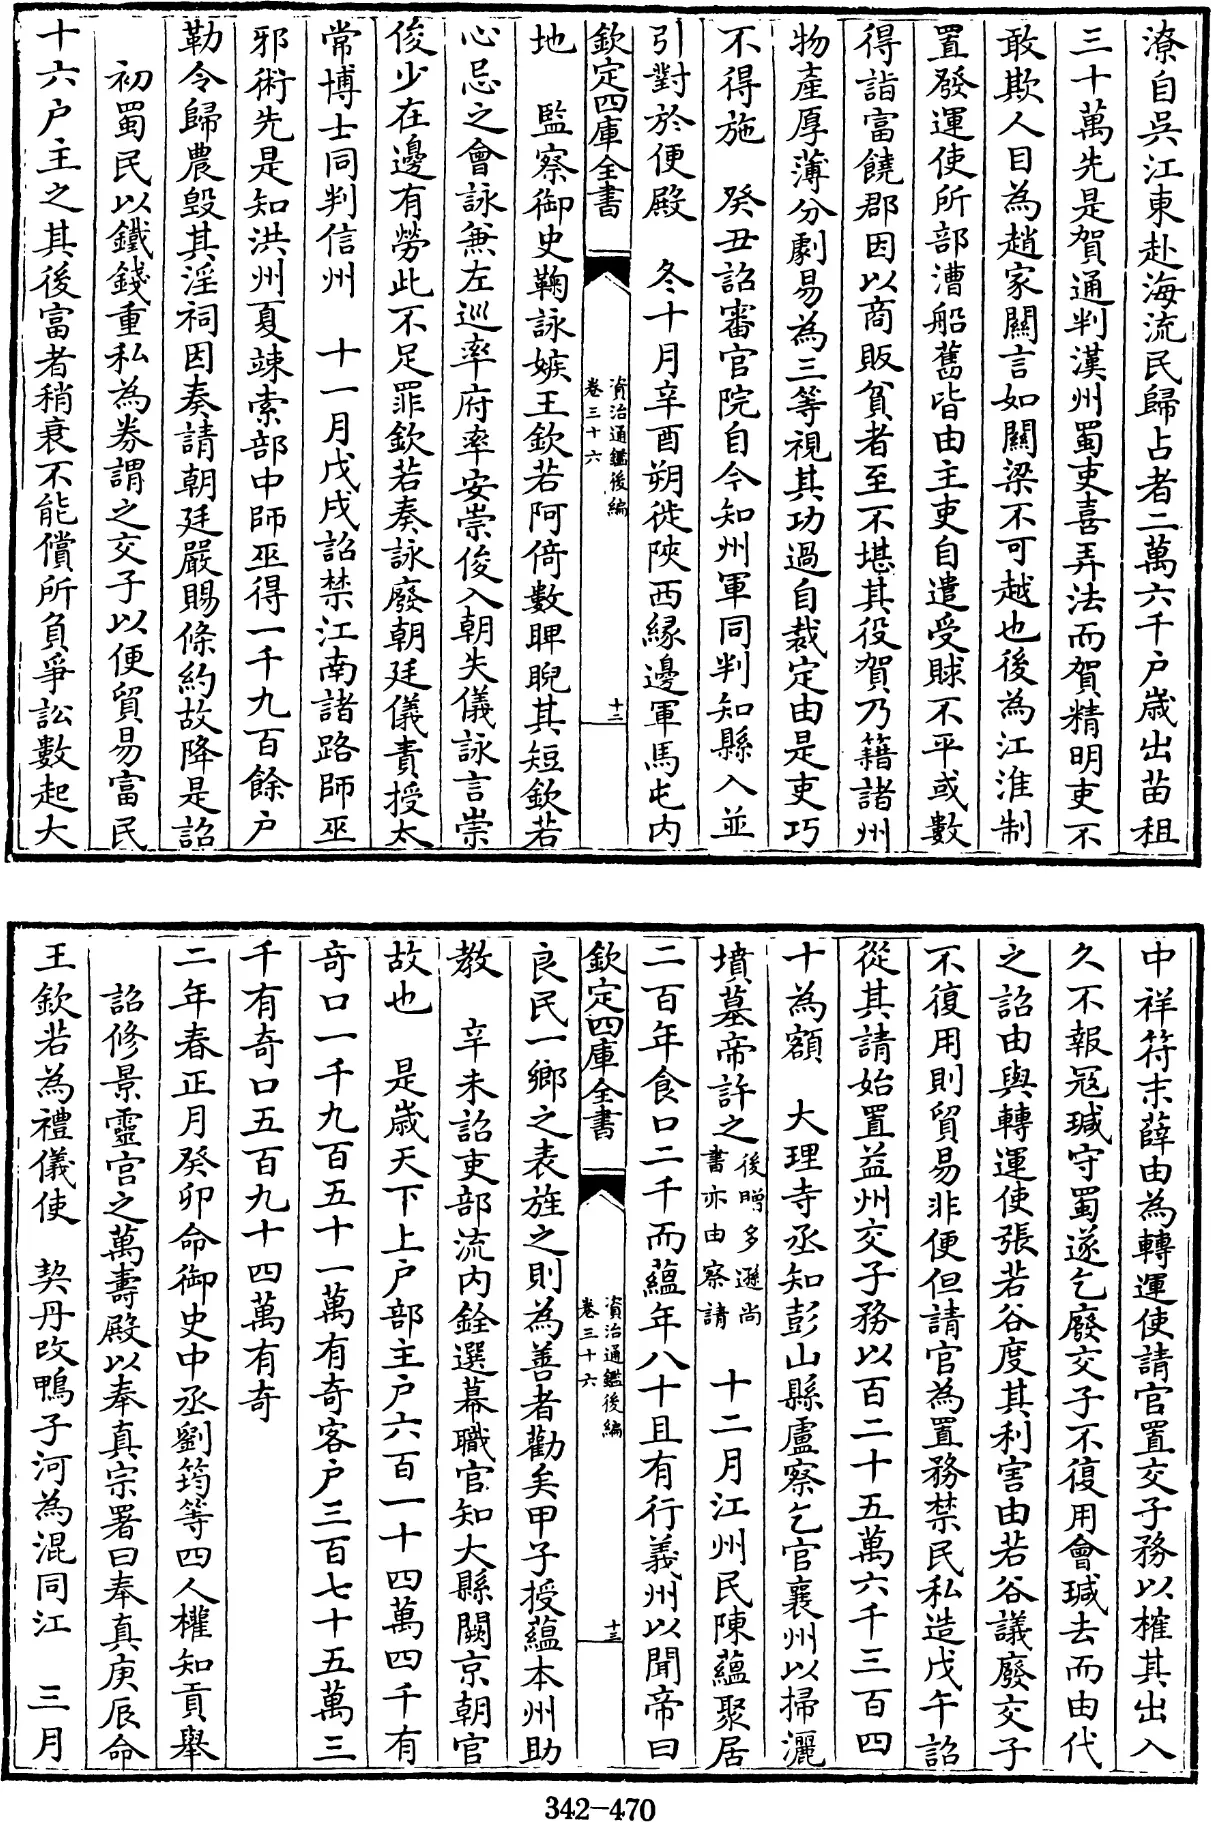 潦自吳江東赴海流民歸占者二萬六千户歳出苗租
三十萬先是賀通判漢州蜀吏喜弄法而賀精明吏不
敢欺人目為趙家關言如關梁不可越也後為江淮制
置發運使所部漕船舊皆由主吏自遣受賕不平或數
得詣富饒郡因以商販貧者至不堪其役賀乃籍諸州
物產厚薄分劇易為三等視其功過自裁定由是吏巧
不得施　癸丑詔審官院自今知州軍同判知縣入並
引對於便殿　冬十月辛酉朔徙陜西縁邊軍馬屯内
欽定四庫全書
資治通鑑後編
卷三十六
十二
地　監察御史鞠詠嫉王欽若阿倚數睥睨其短欽若
心忌之會詠兼左巡率府率安崇俊入朝失儀詠言崇
俊少在邊有勞此不足罪欽若奏詠廢朝廷儀責授太
常博士同判信州　十一月戊戌詔禁江南諸路師巫
邪術先是知洪州夏竦索部中師巫得一千九百餘户
勒令歸農毀其淫祠因奏請朝廷嚴賜條約故降是詔
初蜀民以鐵錢重私為券謂之交子以便貿易富民
十六户主之其後富者稍衰不能償所負爭訟數起大
中祥符末薛由為轉運使請官置交子務以榷其出入
久不報冦瑊守蜀遂乞廢交子不復用會瑊去而由代
之詔由與轉運使張若谷度其利害由若谷議廢交子
不復用則貿易非便但請官為置務禁民私造戊午詔
從其請始置益州交子務以百二十五萬六千三百四
十為額　大理寺丞知彭山縣盧察乞官襄州以掃灑
墳墓帝許之後贈多遜尚書亦由察請　十二月江州民陳蘊聚居
二百年食口二千而蘊年八十且有行義州以聞帝曰
欽定四庫全書
資治通鑑後編
卷三十六
十三
良民一鄉之表旌之則為善者勸矣甲子授蘊本州助
教　辛未詔吏部流内銓選幕職官知大縣闕京朝官
故也　是歳天下上户部主户六百一十四萬四千有
奇口一千九百五十一萬有奇客户三百七十五萬三
千有奇口五百九十四萬有奇
二年春正月癸卯命御史中丞劉筠等四人權知貢舉
詔修景靈宫之萬壽殿以奉真宗署曰奉真庚辰命
王欽若為禮儀使　契丹改鴨子河為混同江　三月
342-470